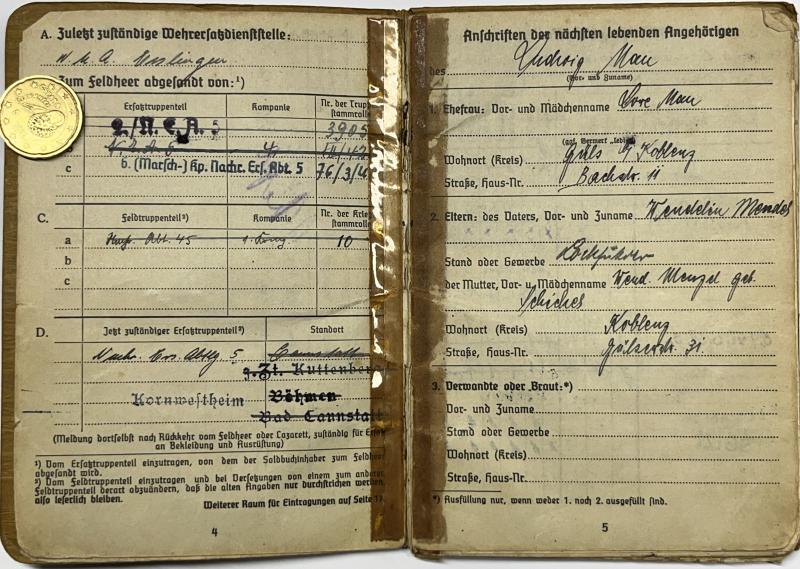 A. Zuletzt zuständige Wehrersatzdienststelle:
W M A Esslingen
Zum Feldheer abgesandt von:¹)
Ersatztruppenteil
Kompanie
Nr. der Trup
stammrolle
2./N.E.A. 5
3905
N.E.A. 5
4.
b. (Marsch-) Kp. Nachr. Ers. Abt. 5
76/3/4
c
C.
Feldtruppenteil²)
Kompanie
Nr. der Krie
stammrolle
a
Abt. 45
10
b
c
D.
Jetzt zuständiger Ersatztruppenteil²)
Standort
Nachr. Ers. Abtlg 5
Cannstatt
z. Zt. Kuttenber
Kornwestheim
Böhmen
Bad Cannstatt
(Meldung dortselbst nach Rückkehr vom Feldheer oder Lazarett, zuständig für Ers
an Bekleidung und Ausrüstung)
¹) Vom Ersatztruppenteil einzutragen, von dem der Soldbuchinhaber zum Feldheer
abgesandt wird.
²) Vom Feldtruppenteil einzutragen und bei Versetzungen von einem zum anderen
Feldtruppenteil derart abzuändern, daß die alten Angaben nur durchstrichen werden,
also leserlich bleiben.
Weiterer Raum für Eintragungen auf Seite 17
4
Anschriften der nächsten lebenden Angehörigen
des Ludwig Mau
(Vor- und Zuname)
1. Ehefrau: Vor- und Mädchenname Lore Mau
(ggf. Vermerk „ledig“)
Wohnort (Kreis) Güls Koblenz
Straße, Haus-Nr. Bachstr. 11
2. Eltern: des Vaters, Vor- und Zuname Wendelin
Stand oder Gewerbe Lokführer
der Mutter, Vor- u. Mädchenname geb.
Wohnort (Kreis) Koblenz
Straße, Haus-Nr. Gülserstr. 31
3. Verwandte oder Braut:*)
Vor- und Zuname
Stand oder Gewerbe
Wohnort (Kreis)
Straße, Haus-Nr.
*) Ausfüllung nur, wenn weder 1. noch 2. ausgefüllt sind.
5